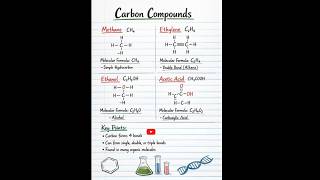 Carbon Compounds
Methane CH₄
Ethylene C₂H₄
H
H-C-H
H
H H
C=C
H H
Molecular Formula: CH₄
- Simple Hydrocarbon
Molecular Formula: C₂H₄
- Double Bond (Alkene)
Ethanol C₂H₅OH
Acetic Acid CH₃COOH
Molecular Formula: C₂H₆O
- Alcohol
Molecular Formula: C₂H₄O₂
- Carboxylic Acid
Key Points:
• Carbon forms 4 bonds
• Can form single, double, or triple bonds
• Found in many organic molecules